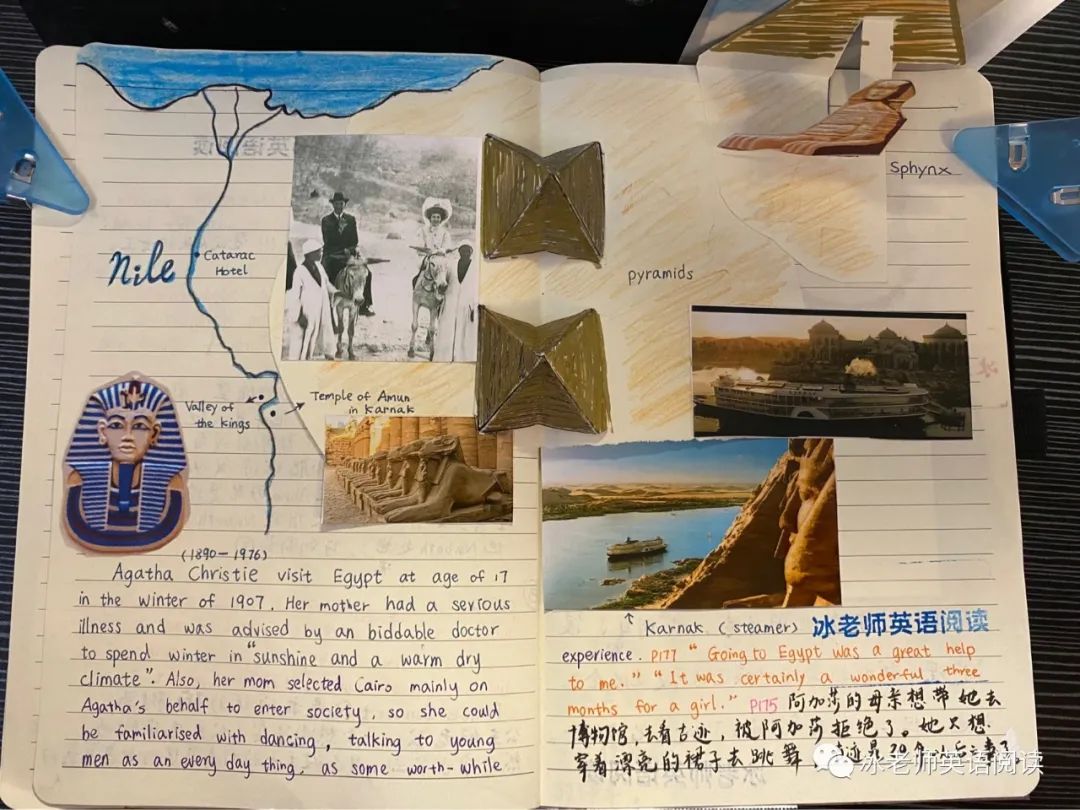 Nile
Catarac
Hotel
Valley of
the kings
Temple of Amun
in Karnak
(1890-1976)
Agatha Christie visit Egypt at age of 17
in the winter of 1907. Her mother had a serious
illness and was advised by an biddable doctor
to spend winter in "sunshine and a warm dry
climate". Also, her mom selected Cairo mainly on
Agatha's behalf to enter society, so she could
be familiarised with dancing, talking to young
men as an every day thing, as some worth-while
Sphynx
pyramids
↑ Karnak (steamer) 冰老师英语阅读
experience. P177 "Going to Egypt was a great help
to me." "It was certainly a wonderful three
months for a girl." P175 阿加莎的母亲想带她去
博物馆,去看古迹,被阿加莎拒绝了。她只想
穿着漂亮的裙子去跳舞
冰老师英语阅读